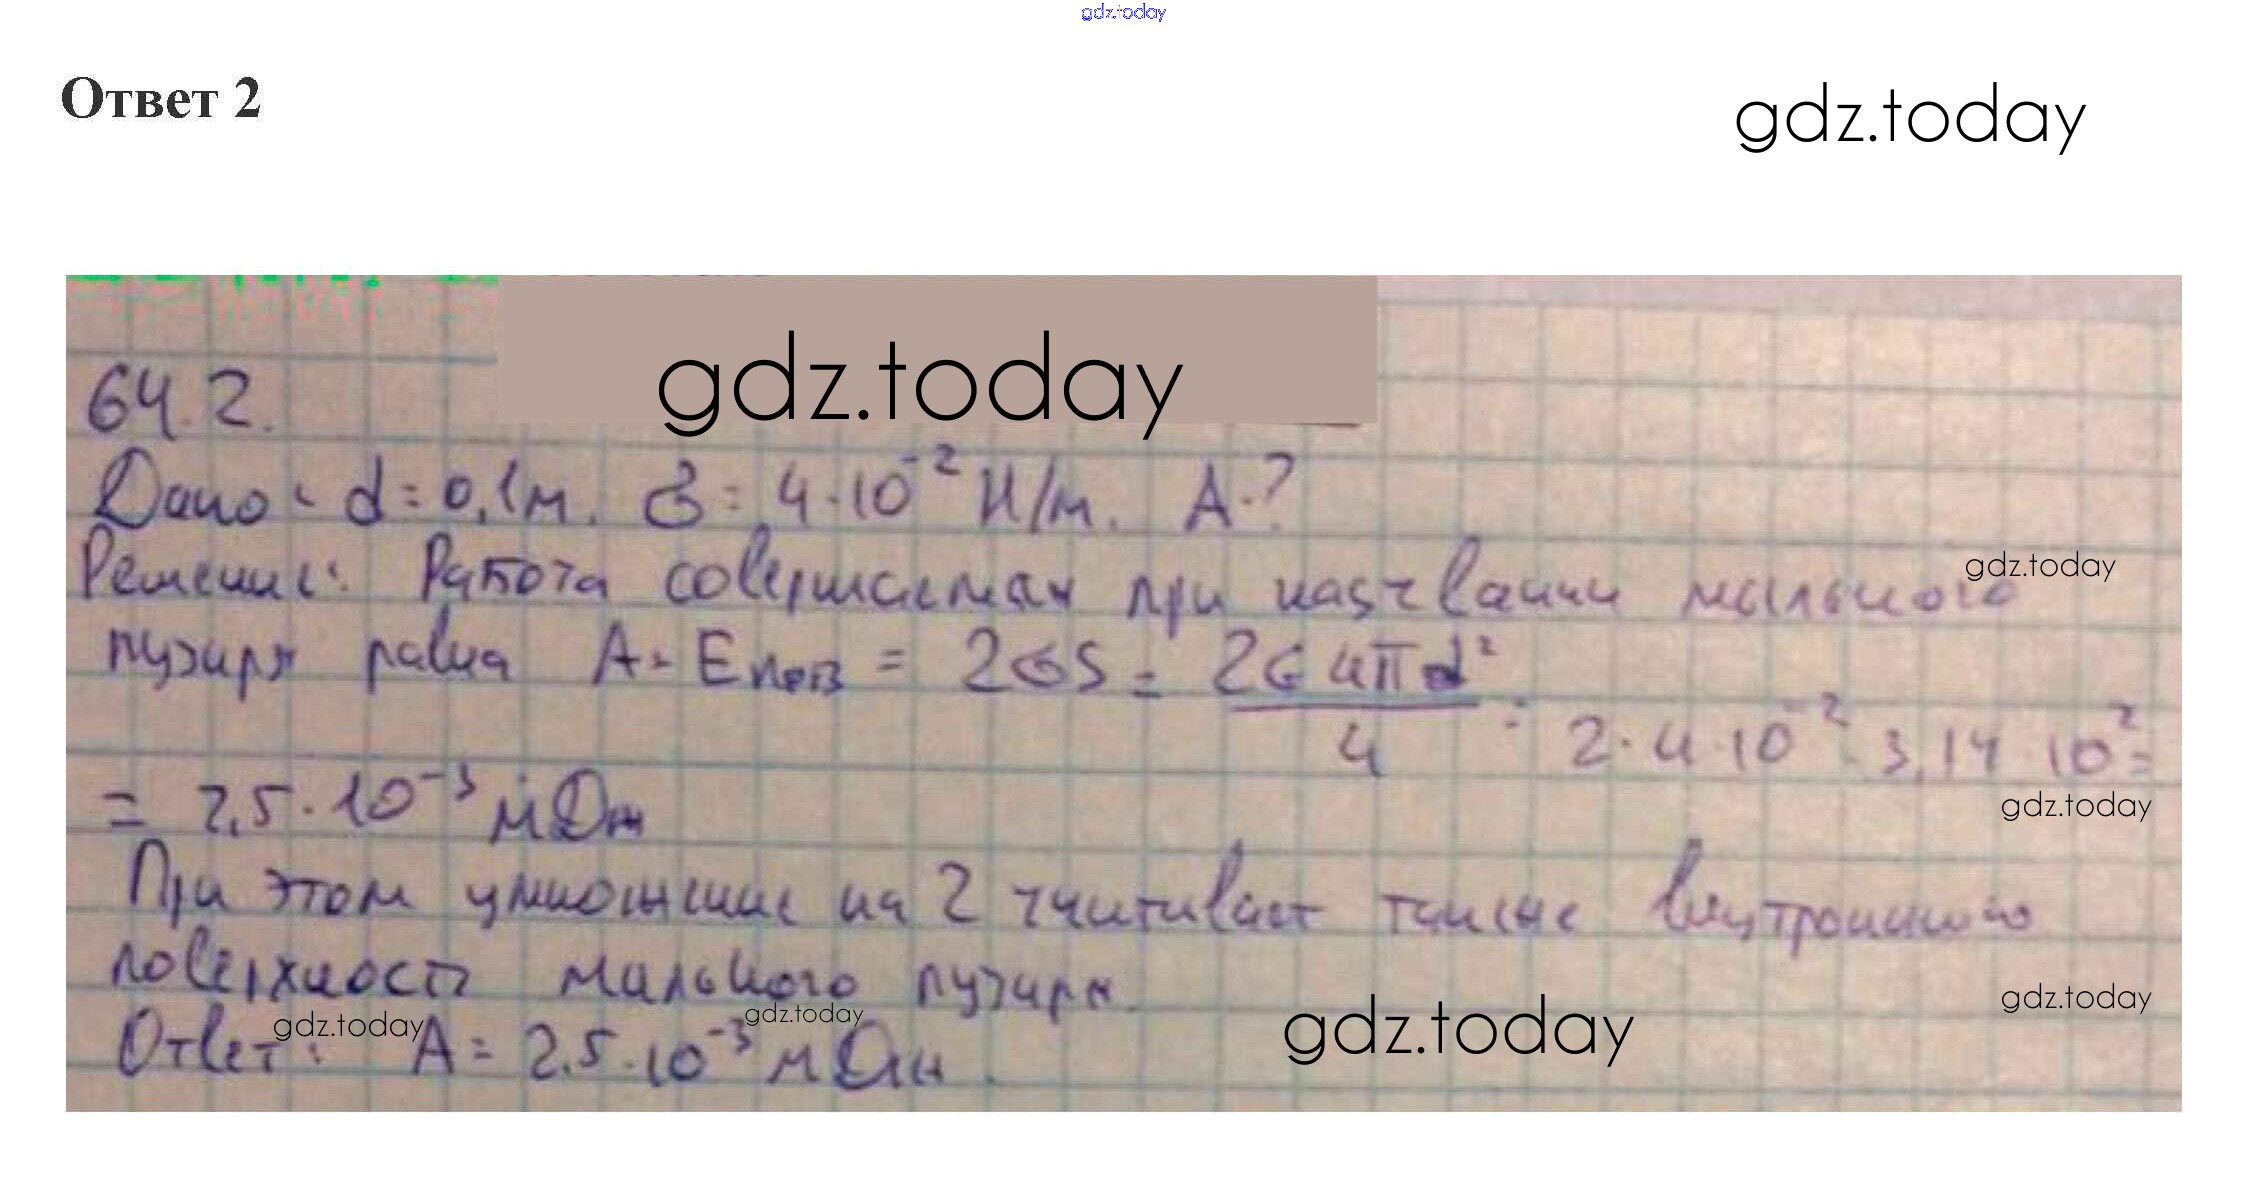 gdz.today
Ответ 2
gdz.today
gdz.today
64.2.
Дано: d = 0,1м. σ = 4·10⁻² Н/м. A-?
Решение: Работа совершаемая при надувании мыльного
gdz.today
пузыря равна A = Eпов = 2σS = 2σ4πd²/4 = 2·4·10⁻²·3,14·10²=
= 2,5·10⁻³ мДж
gdz.today
При этом умножение на 2 учитывает также внутреннюю
поверхность мыльного пузыря.
gdz.today
gdz.today
gdz.today
gdz.today
Ответ: A = 2,5·10⁻³ мДж.